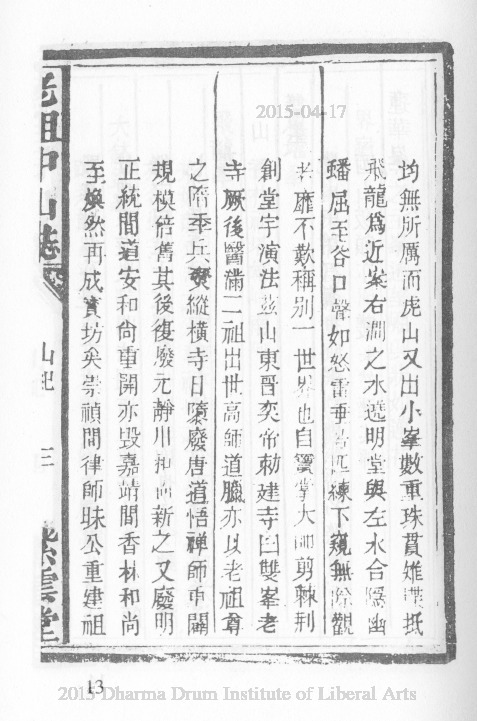 均無所厲而虎山又出小峯數重珠貫雉疊抵
飛龍爲近案右澗之水遶明堂與左水合隱幽
蟠屈至谷口聲如怒雷垂若匹練下窺無際觀
者靡不歎稱別一世界也自寶掌大師剪棘荆
創堂宇演法茲山東晉奕帝勅建寺曰雙峯老
寺厥後醫滿二祖出世高師道臘亦以老祖尊
之隋季兵燹縱橫寺日隳廢唐道悟禪師重闢
規模倍舊其後復廢元靜川和尚新之又廢明
正統間道安和尚重開亦毀嘉靖間香林和尚
至煥然再成寶坊矣崇禎間律師昧公重建祖
老祖中山志
山記
三
紫雲堂
2015-04-17
13
2015 Dharma Drum Institute of Liberal Arts